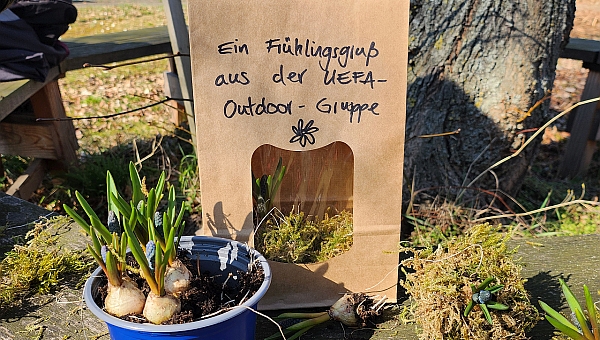 Ein Frühlingsgruß
aus der UEFA-
Outdoor-Gruppe